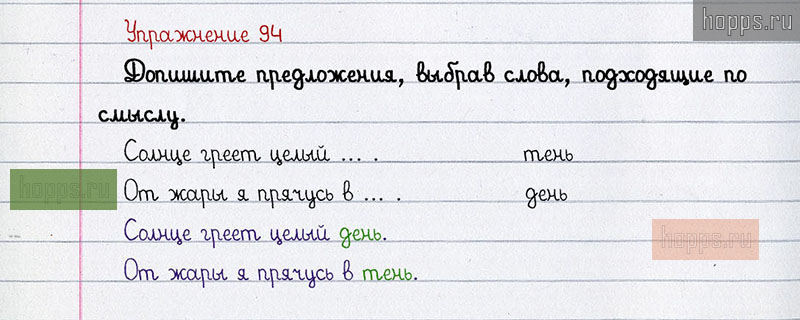 hopps.ru
Упражнение 94
Допишите предложения, выбрав слова, подходящие по
смыслу.
Солнце греет целый ... . тень
hopps.ru От жары я прячусь в ... . день
Солнце греет целый день.
hopps.ru
От жары я прячусь в тень.